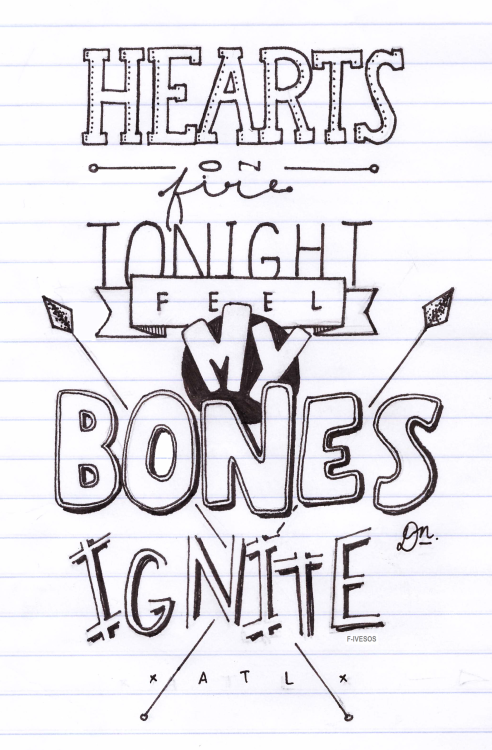 HEARTS
ON
fire
TONIGHT
FEEL
MY
BONES
IGNITE
Dn.
F-IVESOS
x ATL x